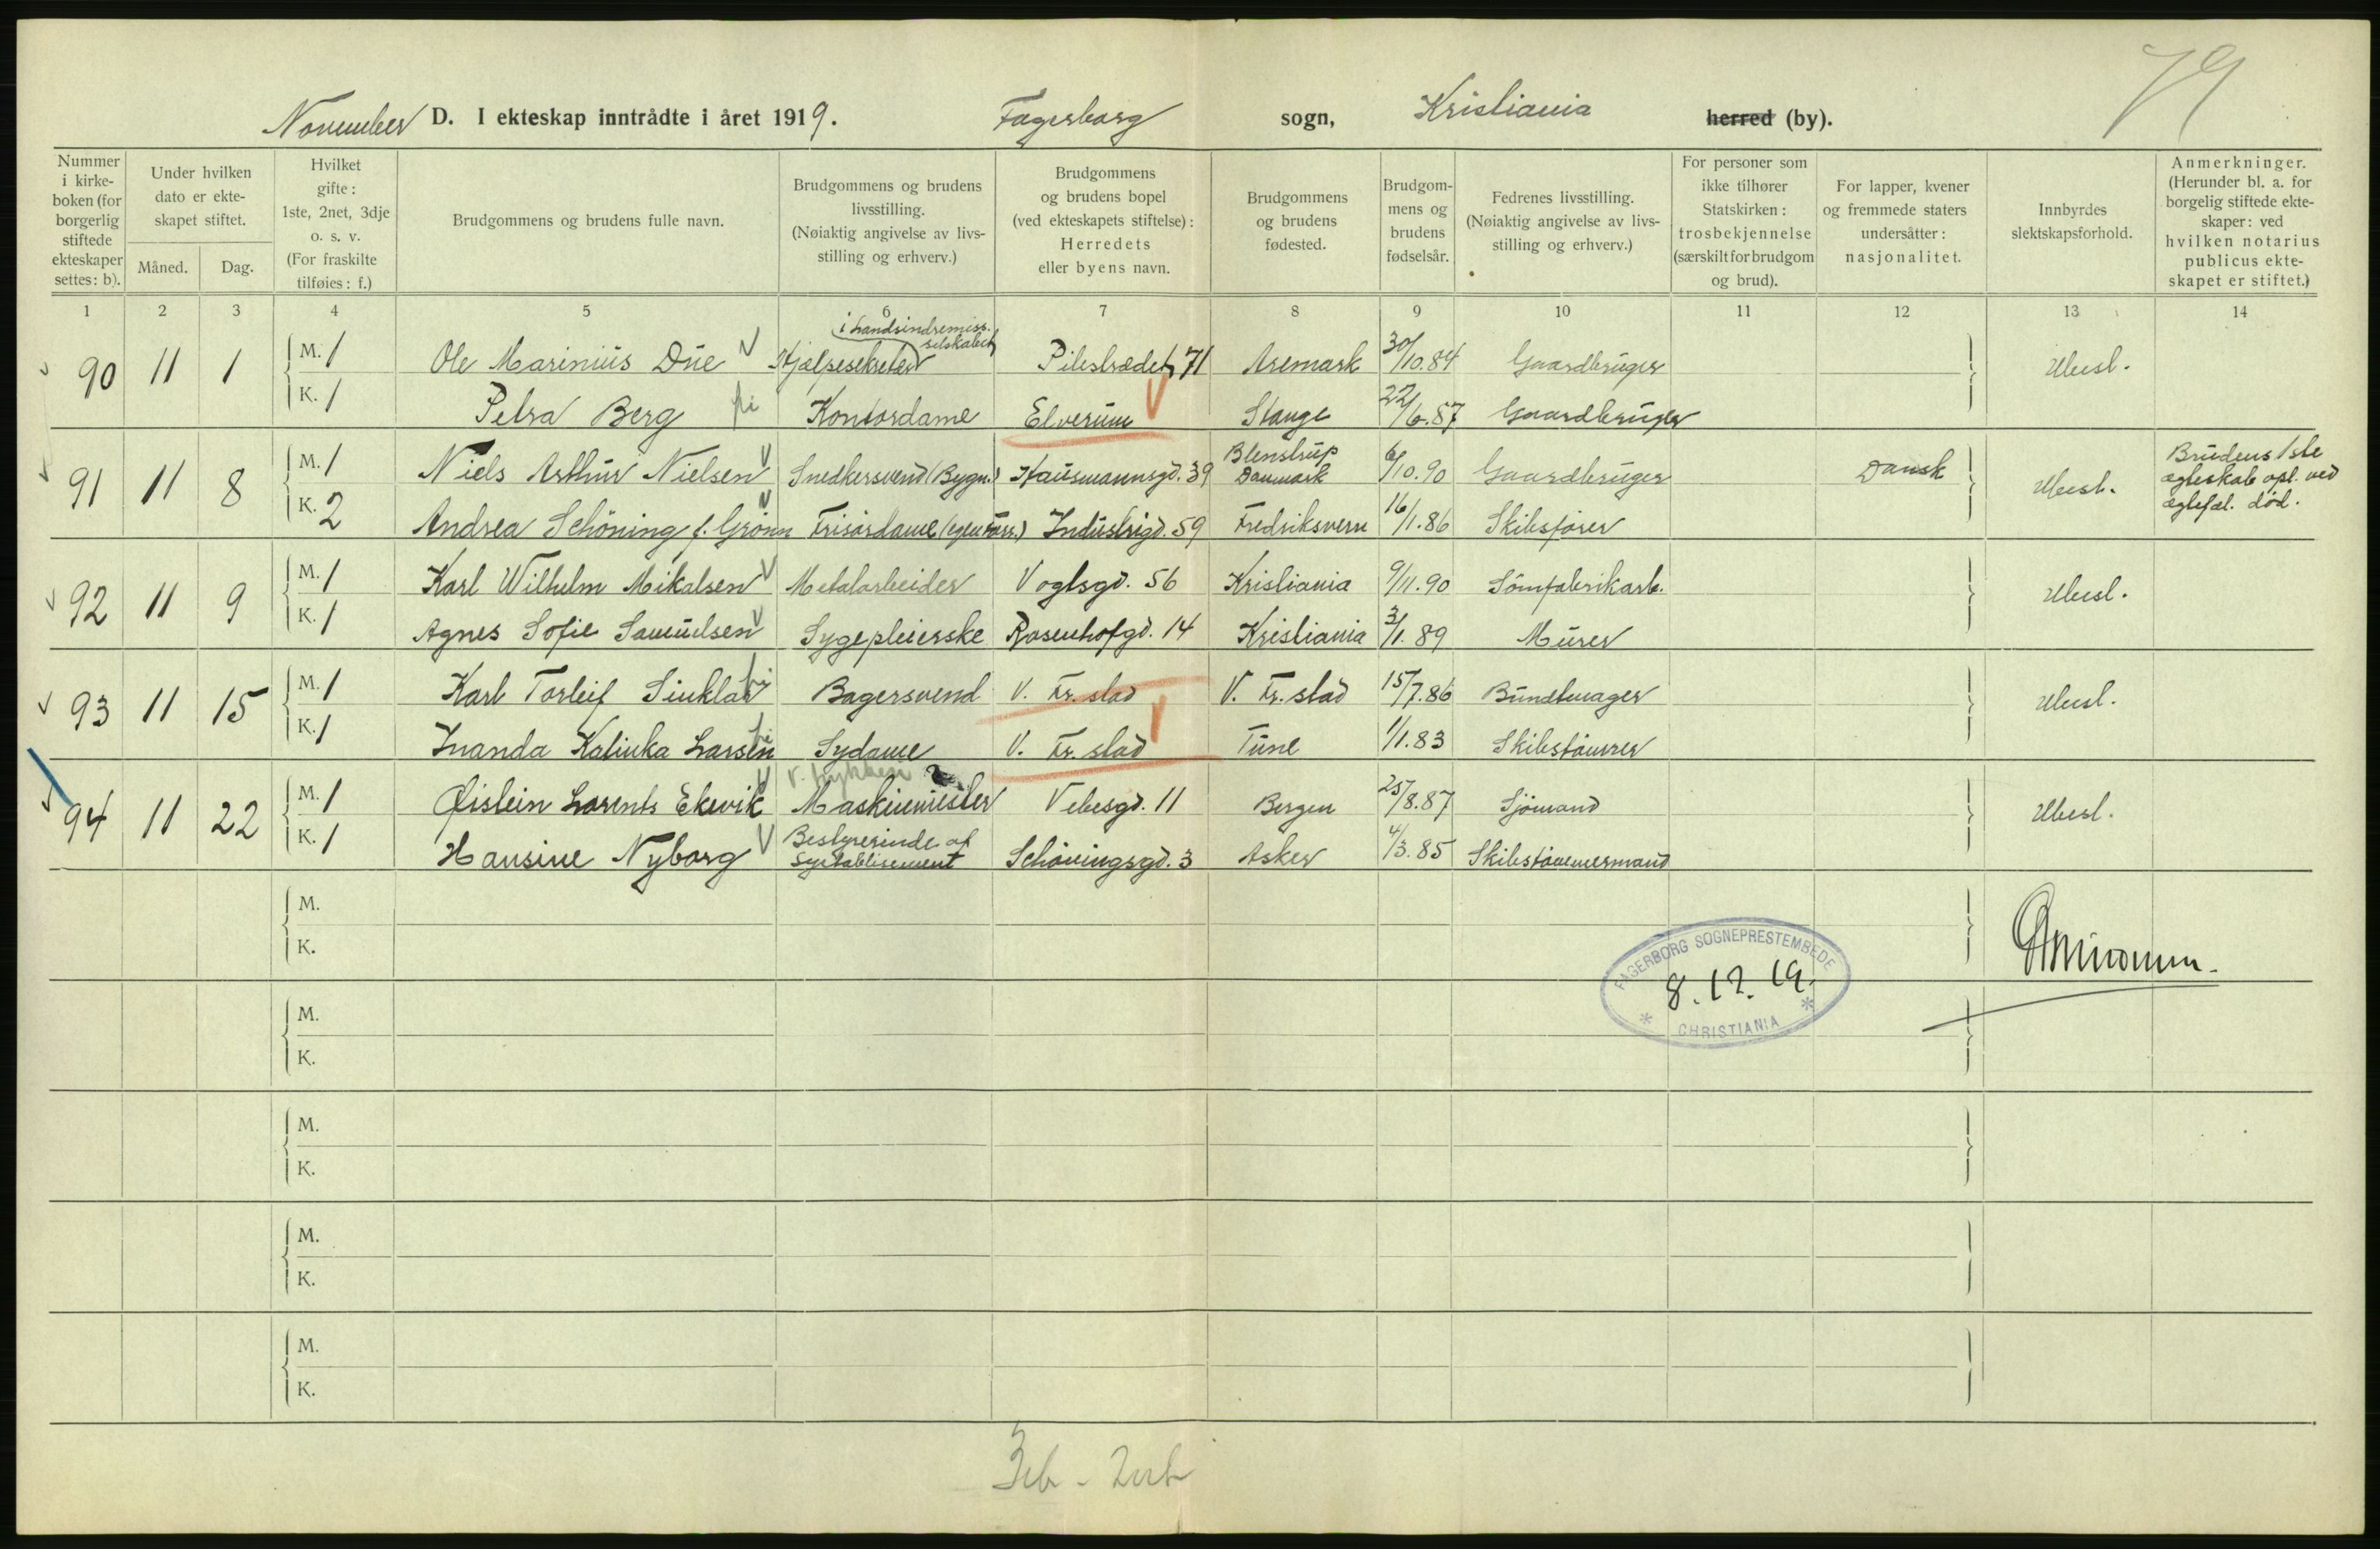 79
November D. I ekteskap inntrådte i året 1919. Fagerborg sogn, Kristiania herred (by).
Nummer i kirke-boken (for borgerlig stiftede ekteskaper settes: b).
Under hvilken dato er ekte-skapet stiftet.
Måned. Dag.
Hvilket gifte: 1ste, 2net, 3dje o. s. v. (For fraskilte tilføies: f.)
Brudgommens og brudens fulle navn.
Brudgommens og brudens livsstilling. (Nøiaktig angivelse av livs-stilling og erhverv.)
Brudgommens og brudens bopel (ved ekteskapets stiftelse): Herredets eller byens navn.
Brudgommens og brudens fødested.
Brudgom-mens og brudens fødselsår.
Fedrenes livsstilling. (Nøiaktig angivelse av livs-stilling og erhverv.)
For personer som ikke tilhører Statskirken: trosbekjennelse (særskilt for brudgom og brud).
For lapper, kvener og fremmede staters undersåtter: nasjonalitet.
Innbyrdes slektskapsforhold.
Anmerkninger. (Herunder bl. a. for borgelig stiftede ekte-skaper: ved hvilken notarius publicus ekte-skapet er stiftet.)
1 2 3 4 5 6 7 8 9 10 11 12 13 14
i Landsindremiss. selskabet
90 11 1 M. 1 Ole Marinius Due Hjælpesekretær Pilestrædet 71 Aremark 30/10.84 Gaardbruger Ubesl.
K. 1 Petra Berg fri Kontordame Elverum Stange 22/6.87 Gaardbruger
91 11 8 M. 1 Niels Arthur Nielsen Snedkersvend (Bygn.) Hausmannsgd. 39 Blenstrup Danmark 6/10.90 Gaardbruger Dansk Ubesl. Brudens 1ste ægteskab opl. ved ægtefæl. død.
K. 2 Andrea Schöning f. Grönn Frisördame (egen forr.) Industrigd. 59 Fredriksvern 16/1.86 Skibsfører
92 11 9 M. 1 Karl Wilhelm Mikalsen Metalarbeider Vogtsgd. 56 Kristiania 9/11.90 Sömfabrikarb. Ubesl.
K. 1 Agnes Sofie Samuelsen Sygepleierske Rosenhofgd. 14 Kristiania 3/1.89 Murer
93 11 15 M. 1 Karl Torleif Sinklar fri Bagersvend V. Fr.stad V. Fr.stad 15/7.86 Bundtmager Ubesl.
K. 1 Inanda Katinka Larsen fri Sydame V. Fr.stad Tune 1/1.83 Skibstömrer
94 11 22 M. 1 Øistein Lorents Ekevik Maskinmester Vibesgd. 11 Bergen 25/8.87 Sjömand Ubesl.
K. 1 Hansine Nyborg Bestyrerinde af Syetablisement Schöningsgd. 3 Asker 4/3.85 Skibstömmermand
M.
K.
FAGERBORG SOGNEPRESTEMBEDE
8.12.19.
CHRISTIANIA
M.
K.
M.
K.
M.
K.
M.
K.